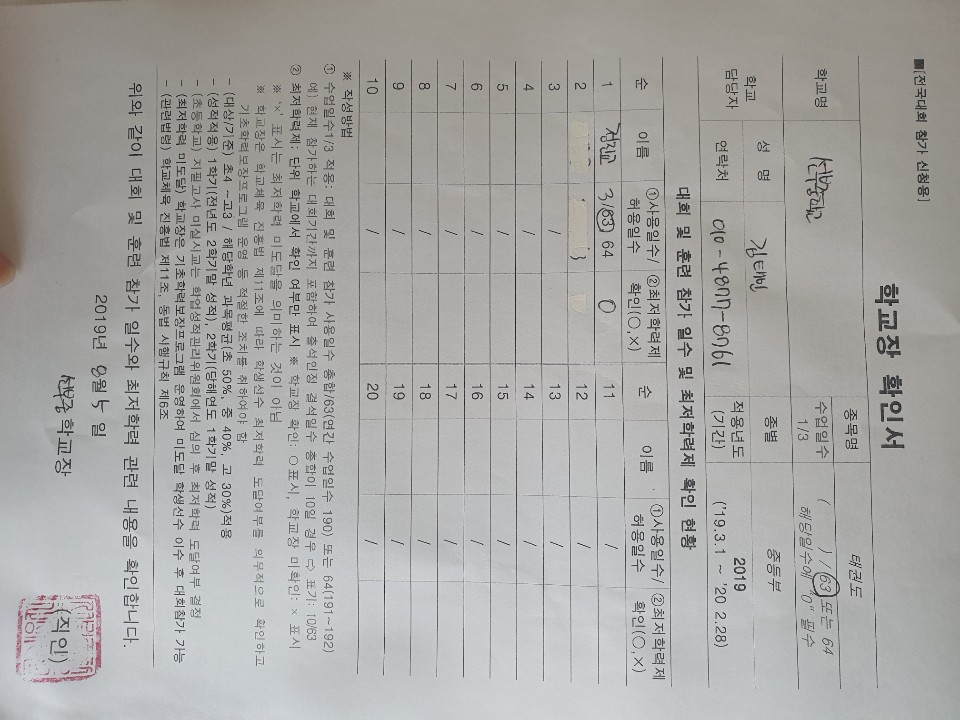 ■[전국대회 참가 신청용]
학교장 확인서
학교명 선부중학교 종목명 태권도
수업일수 1/3 ( ) / 63 또는 64
해당일수에 "O" 필수
학교 담당자 성 명 종별 중등부
연락처 010-4877-8761 적용년도 (기간) 2019 ('19.3.1 ~ '20 2.28)
대회 및 훈련 참가 일수 및 최저학력제 확인 현황
순 이름 ①사용일수/허용일수 ②최저학력제 확인(○,×) 순 이름 ①사용일수/허용일수 ②최저학력제 확인(○,×)
1 3/63 64 O 11 /
2 12 /
3 / 13 /
4 / 14 /
5 / 15 /
6 / 16 /
7 / 17 /
8 / 18 /
9 / 19 /
10 / 20 /
※ 작성방법
① 수업일수1/3 적용: 대회 및 훈련 참가 사용일수 총합/63(연간 수업일수 190) 또는 64(191~192)
예) 현재 참가하는 대회기간까지 포함하여 출석인정 결석일수 총합이 10일 경우 ⇨ 표기: 10/63
② 최저학력제: 단위 학교에서 확인 여부만 표시 ※ 학교장 확인: ○표시, 학교장 미확인: × 표시
※ '×' 표시는 최저학력 미도달을 의미하는 것이 아님
※ 학교장은 학교체육 진흥법 제11조에 따라 학생선수 최저학력 도달여부를 의무적으로 확인하고
기초학력보장프로그램 운영 등 적절한 조치를 취하여야 함
- (대상/기준) 초4 ~고3 / 해당학년 과목평균(초 50%, 중 40%, 고 30%)적용
- (성적적용) 1학기(전년도 2학기말 성적), 2학기(당해연도 1학기말 성적)
- (초등학교) 지필고사 미실시교는 학업성적관리위원회에서 심의 후 최저학력 도달여부 결정
- (최저학력 미도달) 학교장은 기초학력보장프로그램 운영하여 미도달 학생선수 이수 후 대회참가 가능
- (관련법령) 학교체육 진흥법 제11조, 동법 시행규칙 제6조
위와 같이 대회 및 훈련 참가 일수와 최저학력 관련 내용을 확인합니다.
2019년 8월 5일
선부중학교장
(직인)